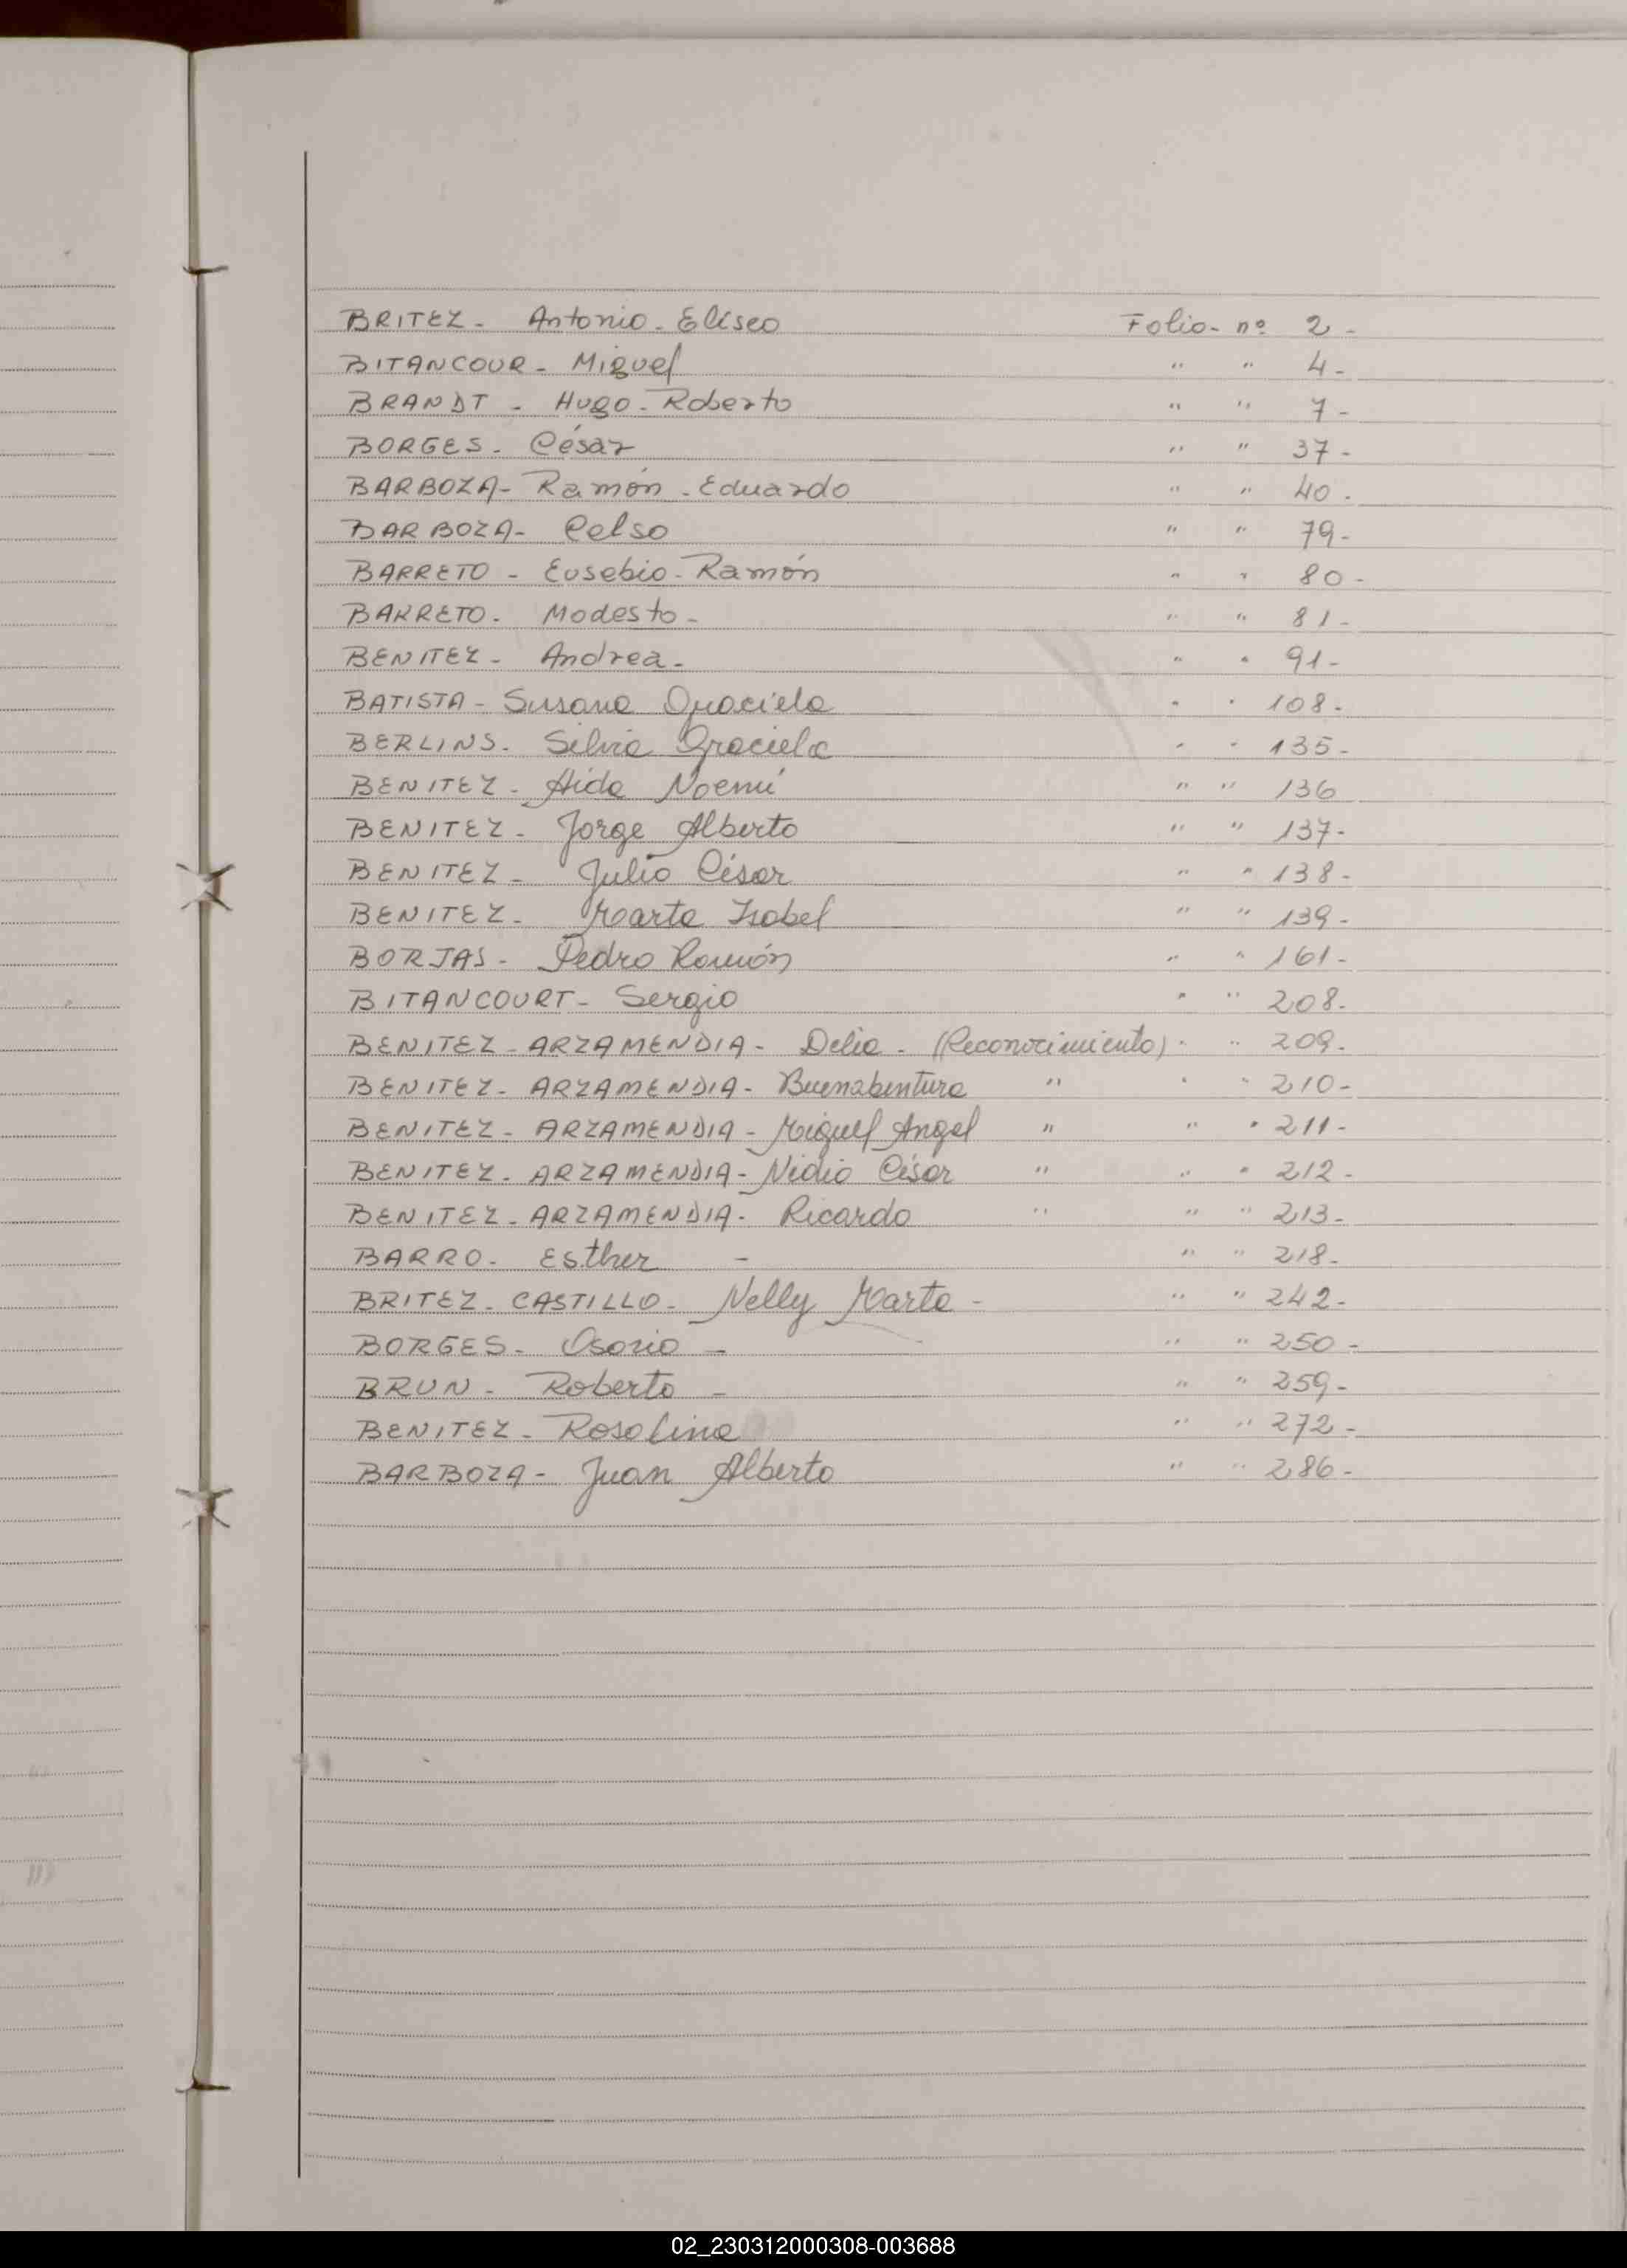 BRITEZ - Antonio - Eliseo Folio - nº 2 -
BITANCOUR - Miguel " " 4 -
BRANDT - Hugo - Roberto " " 7 -
BORGES - César " " 37 -
BARBOZA - Ramón - Eduardo " " 40 -
BARBOZA - Celso " " 79 -
BARRETO - Eusebio - Ramón " " 80 -
BARRETO - Modesto - " " 81 -
BENITEZ - Andrea - " " 91 -
BATISTA - Susana Graciela " " 108 -
BERLINS - Silvia Graciela " " 135 -
BENITEZ - Aida Noemí " " 136
BENITEZ - Jorge Alberto " " 137 -
BENITEZ - Julio César " " 138 -
BENITEZ - Marta Isabel " " 139 -
BORJAS - Pedro Ramón " " 161 -
BITANCOURT - Sergio " " 208 -
BENITEZ - ARZAMENDIA - Delia - (Reconocimiento) " " 209 -
BENITEZ - ARZAMENDIA - Buenabentura " " " 210 -
BENITEZ - ARZAMENDIA - Miguel Angel " " " 211 -
BENITEZ - ARZAMENDIA - Nidio César " " " 212 -
BENITEZ - ARZAMENDIA - Ricardo " " " 213 -
BARRO - Esther - " " 218 -
BRITEZ - CASTILLO - Nelly Marta - " " 242 -
BORGES - Osorio - " " 250 -
BRUN - Roberto - " " 259 -
BENITEZ - Rosalina " " 272 -
BARBOZA - Juan Alberto " " 286 -
02_230312000308-003688